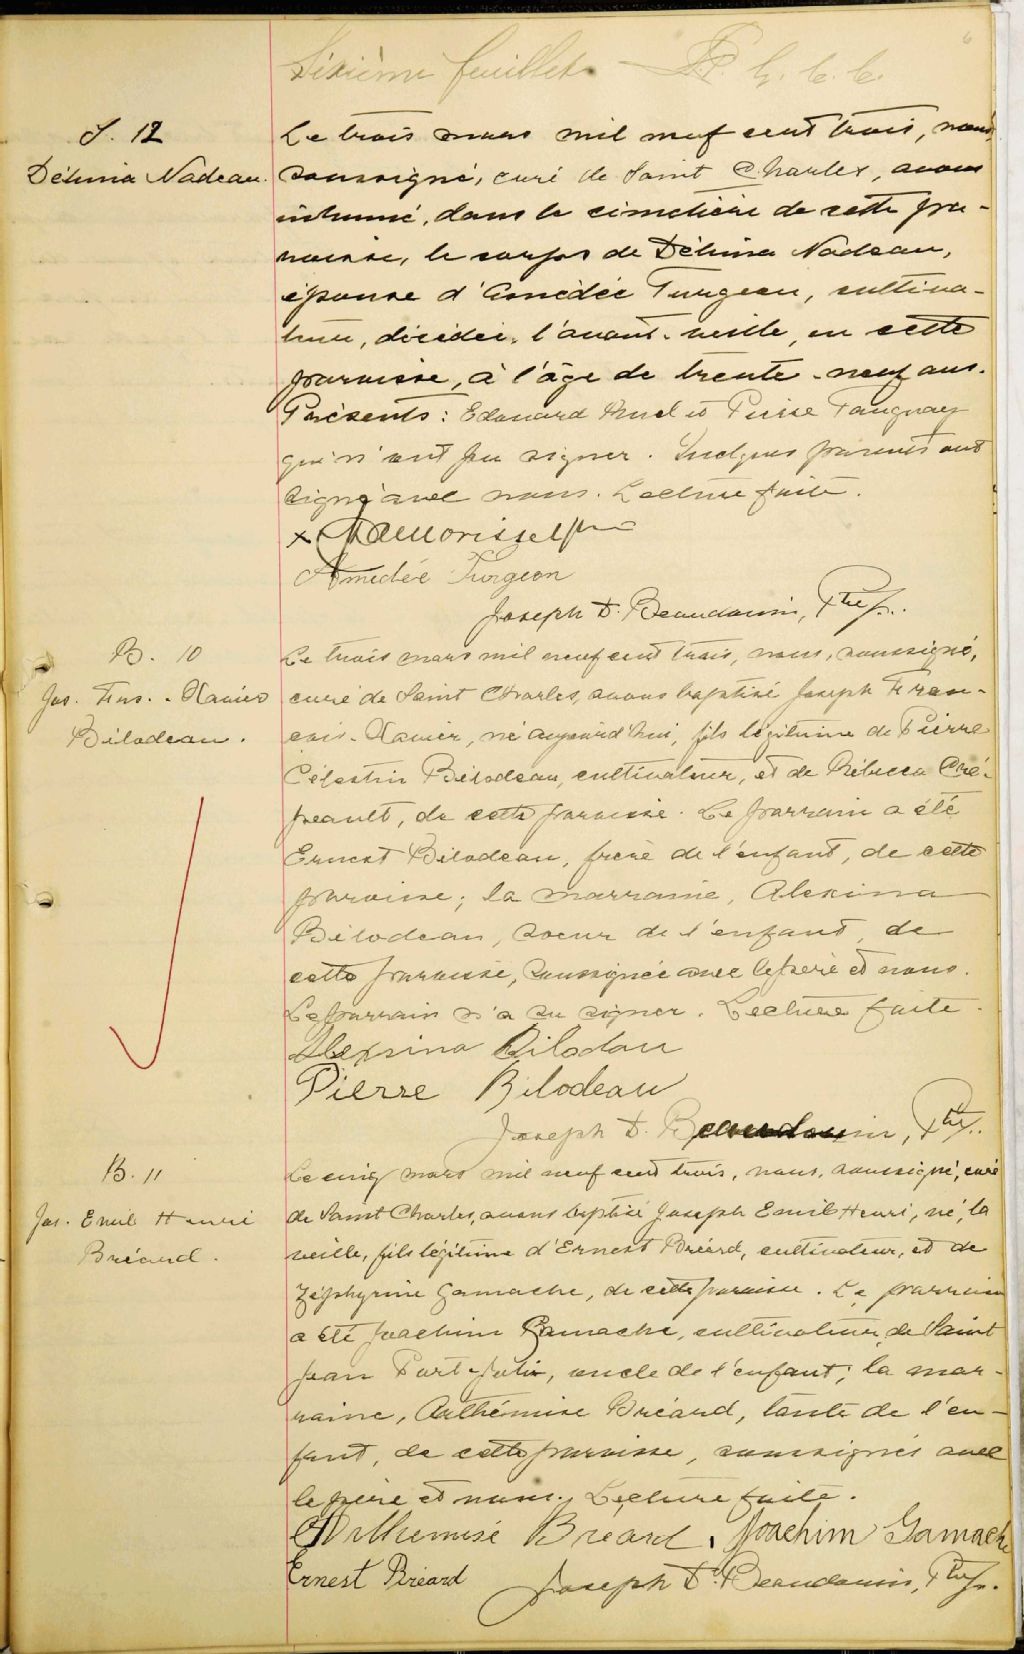 6
Sixième feuillet. P. G. C. C.
S. 12
Délima Nadeau.
Le trois mars mil neuf cent trois, nous,
soussigné, curé de Saint Charles, avons
inhumé, dans le cimetière de cette pa-
roisse, le corps de Délima Nadeau,
épouse d'Amédée Turgeon, cultiva-
teur, décédée, l'avant-veille, en cette
paroisse, à l'âge de trente-neuf ans.
Présents: Edouard et Pierre Tanguay
qui n'ont pu signer. Quelques parents ont
signé avec nous. Lecture faite.
x Morisset ptre
Amédée Turgeon
Joseph D. Beaudouin, Ptre.
B. 10
Jos. Frs. - Xavier
Bilodeau.
Le trois mars mil neuf cent trois, nous, soussigné,
curé de Saint Charles, avons baptisé Joseph Fran-
çois-Xavier, né aujourd'hui, fils légitime de Pierre
Célestin Bilodeau, cultivateur, et de Rébecca Cré-
peault, de cette paroisse. Le parrain a été
Ernest Bilodeau, frère de l'enfant, de cette
paroisse; la marraine, Alexina
Bilodeau, soeur de l'enfant, de
cette paroisse, soussignée avec le père et nous.
Le parrain n'a su signer. Lecture faite.
Alexina Bilodau
Pierre Bilodeau
Joseph D. Beaudouin, Ptre.
B. 11
Jos. Emil Henri
Bréard.
Le cinq mars mil neuf cent trois, nous, soussigné, curé
de Saint Charles, avons baptisé Joseph Emil Henri, né, la
veille, fils légitime d'Ernest Bréard, cultivateur, et de
Zéphyrine Gamache, de cette paroisse. Le parrain
a été Joachim Gamache, cultivateur, de Saint
Jean Port-Joli, oncle de l'enfant; la mar-
raine, Arthémise Bréard, tante de l'en-
fant, de cette paroisse, soussignés avec
le père et nous. Lecture faite.
Arthemise Bréard, Joachim Gamache
Ernest Bréard Joseph D. Beaudouin, Ptre.